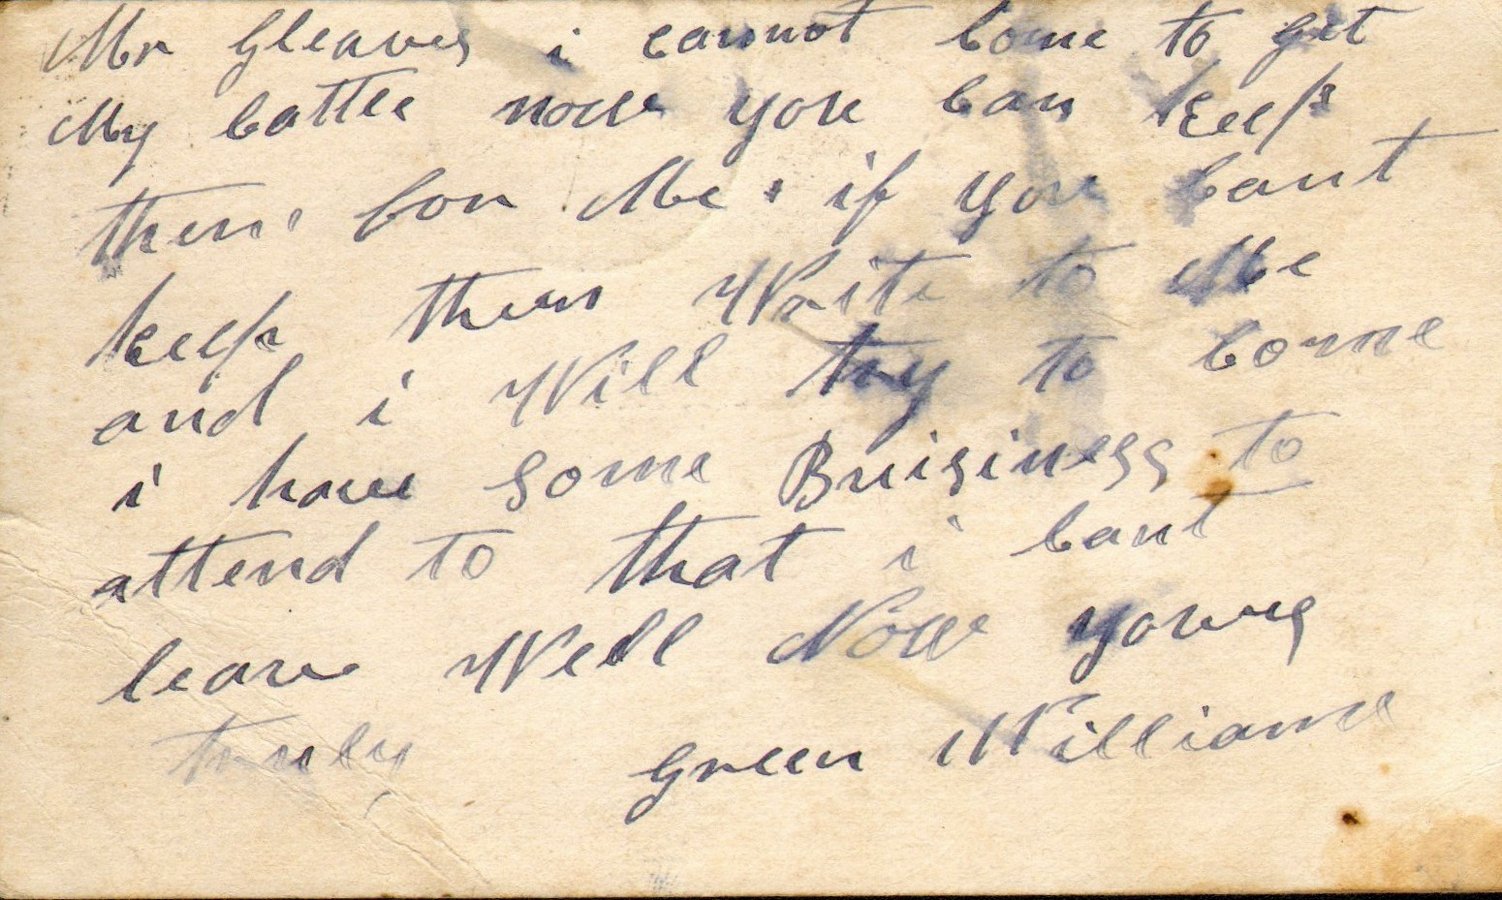 Mr Gleaves i cannot Come to git
My Cattle now you Can keep
them for Me. if you Cant
keep them Write to Me
and i Will try to Come
i have some Buisiness to
attend to that i Cant
leave Well Now yours
truly Green Williams